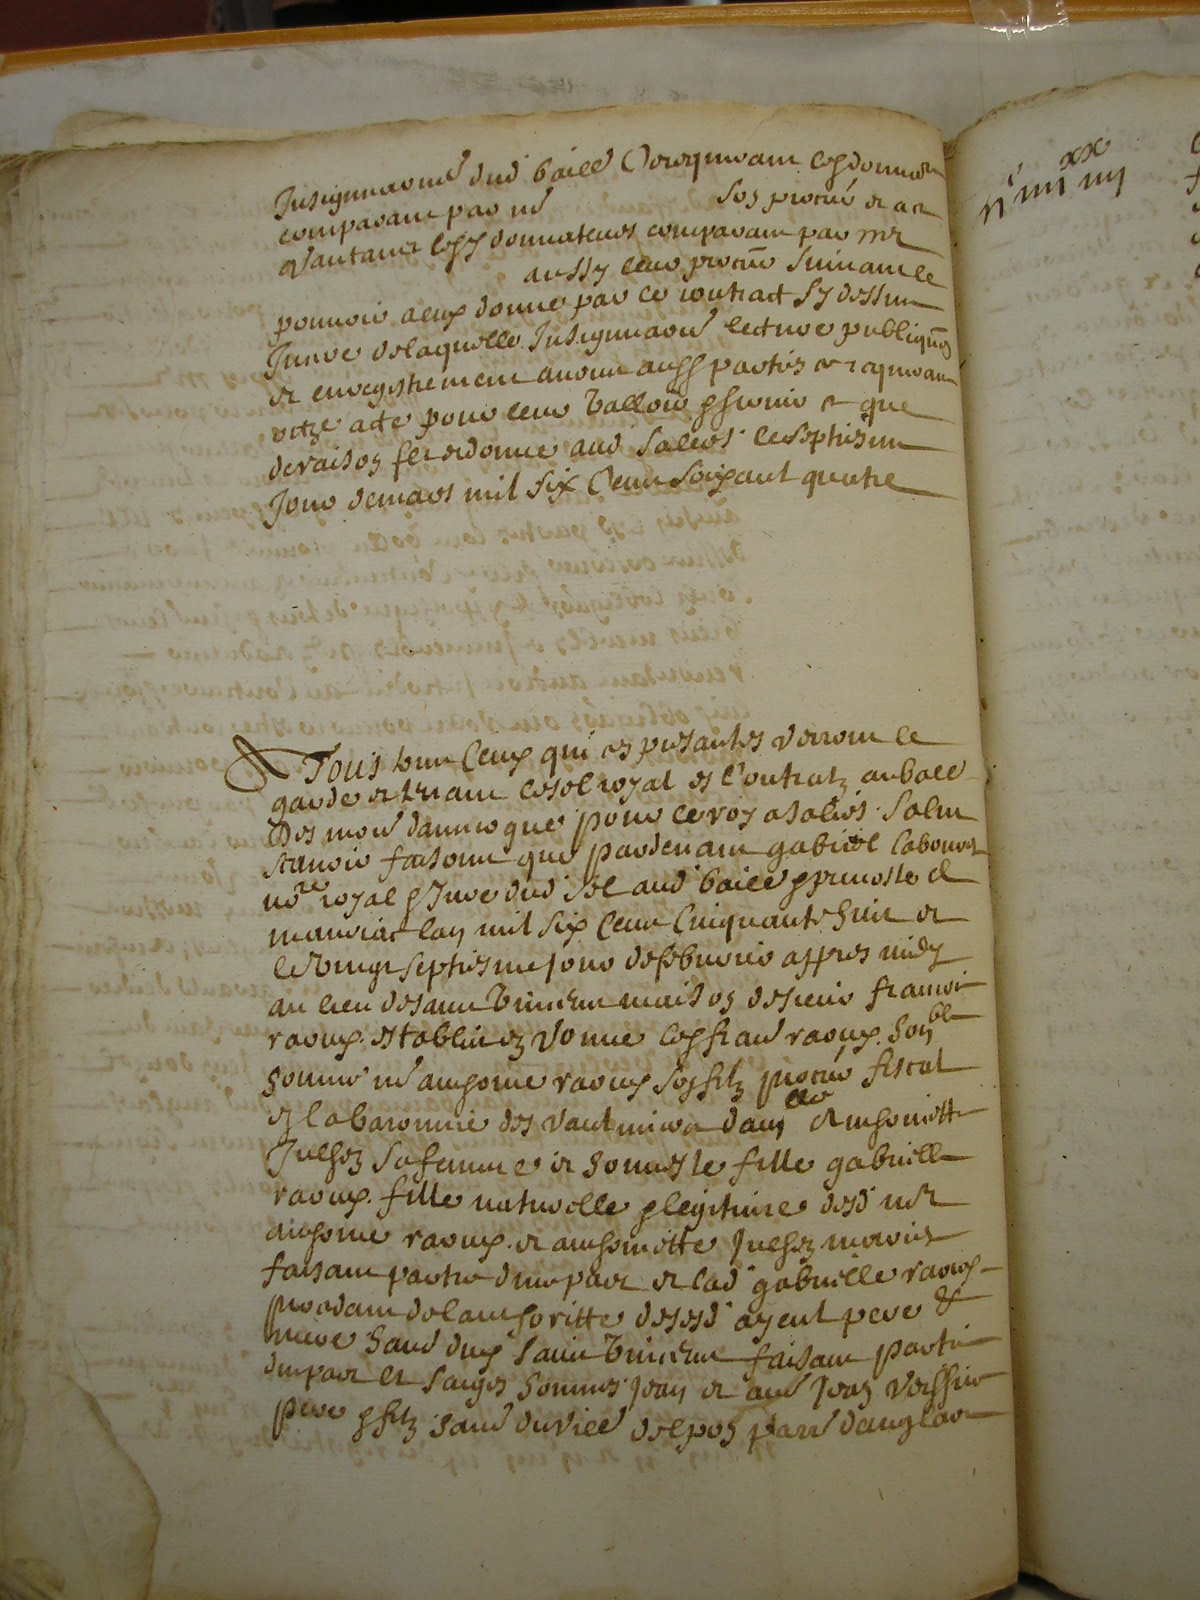 Insignuaond dud baill Ce requerant lesd donnatr
comparant par md
son procur et a ce
Dautant lesd donnateurs comparant par mr
aussy leur procur suivant le
pouvoir a eux donne par le contract sy dessus
Insere de laquelle Insignuaond lecture publiquon
et enregistrement avons ausd parties ce requerant
octze acte pour leur valloir et servir ce que
de raison fet et donne aud Salers le septiesme
Jour de mars mil six Cent soixant quatre
A Tous bun Ceux qui ces presantes verront le
garde et tenant le sel royal es Contratz au baill
des mond dauvergne pour le roy a Salers Salut
scavoir faisons que par devant gabriel labouret
nore royal et Jure dud sel aud baill et prevoste de
mauriac lan mil six Cent Cinquante huit et
le vingt septiesme Jour de febvrier appres midy
au lieu de saint vincent maison de sieur francois
raoux establie en Donne led francois raoux honble
homme md anthoine raoux son filz procur fiscal
en la baronnie des vaulmier dam elle anthoinette
Juehen sa femme et honneste fille gabrielle
raoux fille naturelle et legitime desd mr
anthoine raoux et anthoinette Juehen mariés
faisant partie dune part et lad gabrielle raoux
procedant de lauthoritte desesd ayeul pere &
mere hand dud saint vincent faisant partie
dunpart et saiges hommes Jean et aud Jean verssier
pere et filz hand du vill delpon parr danglar
n iiii xx iiii